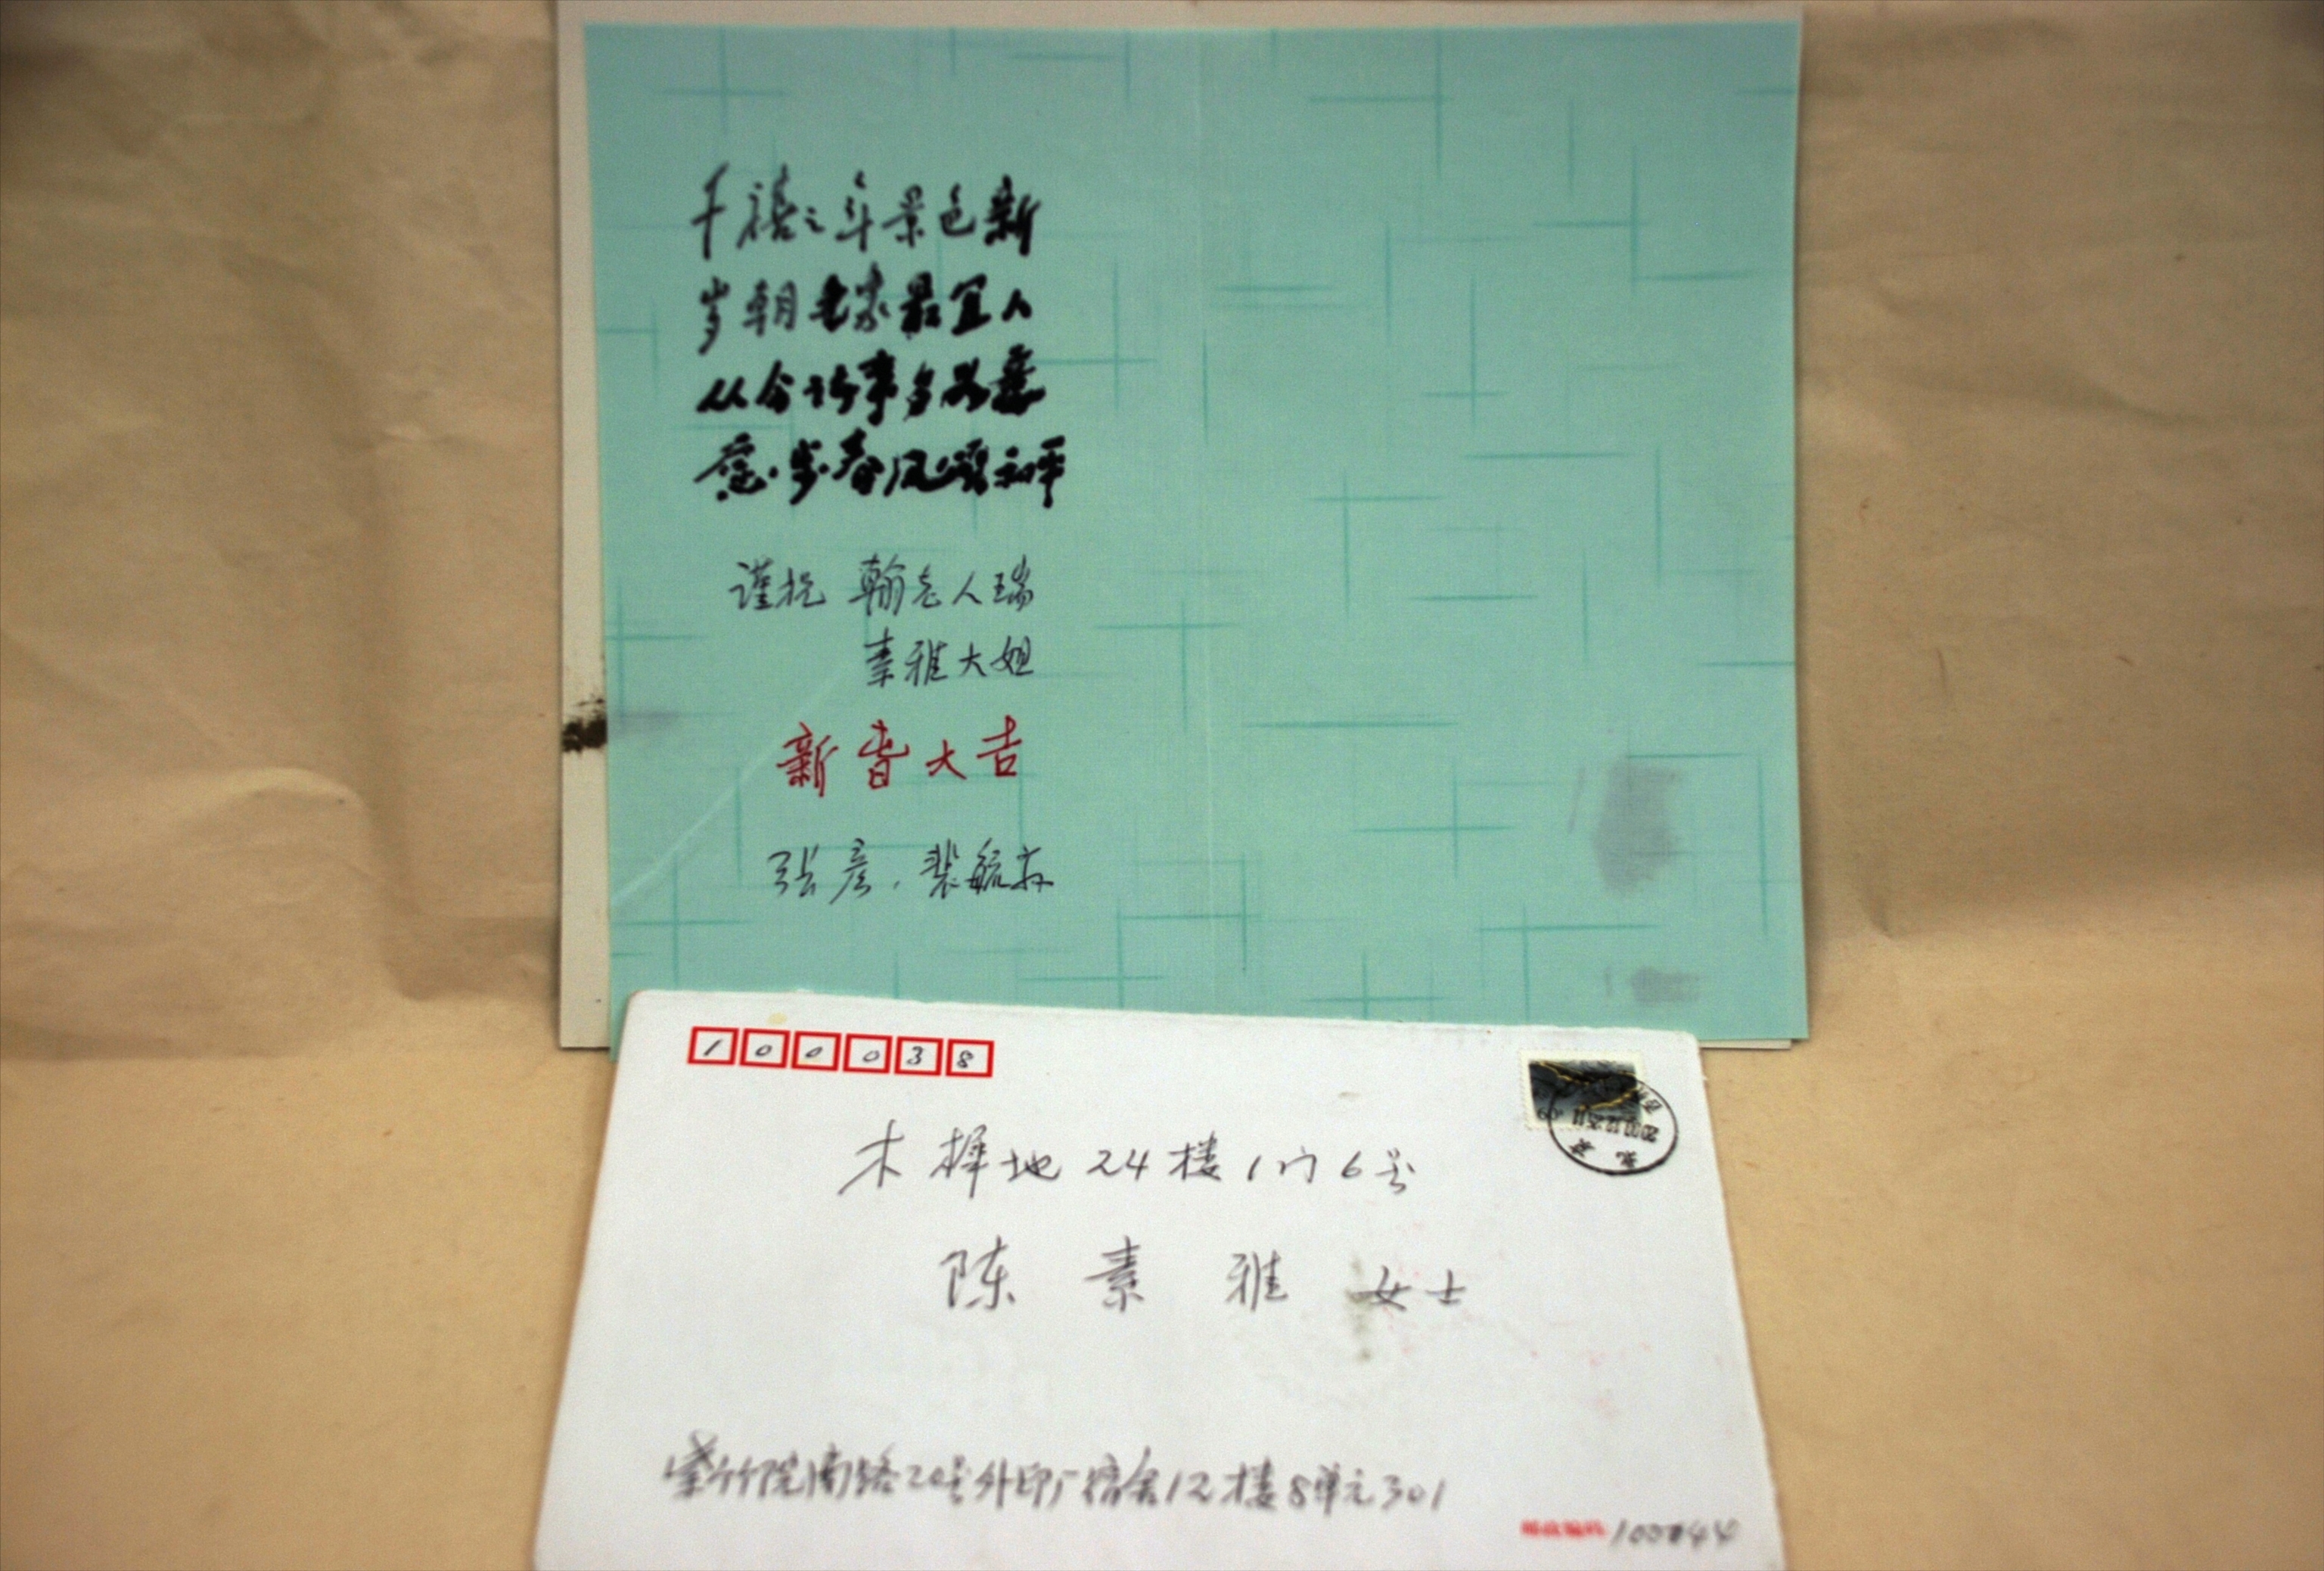 千禧之年景色新
岁朝毛家最宜人
从今诸事多如意
意步春风颂和平
谨祝 翰老人瑞
素雅大姐
新春大吉
张彦、裴毓荪
100038
木樨地24楼1门6号
陈素雅女士
紫竹院南路20号外印厂宿舍12楼8单元301
邮政编码 100044